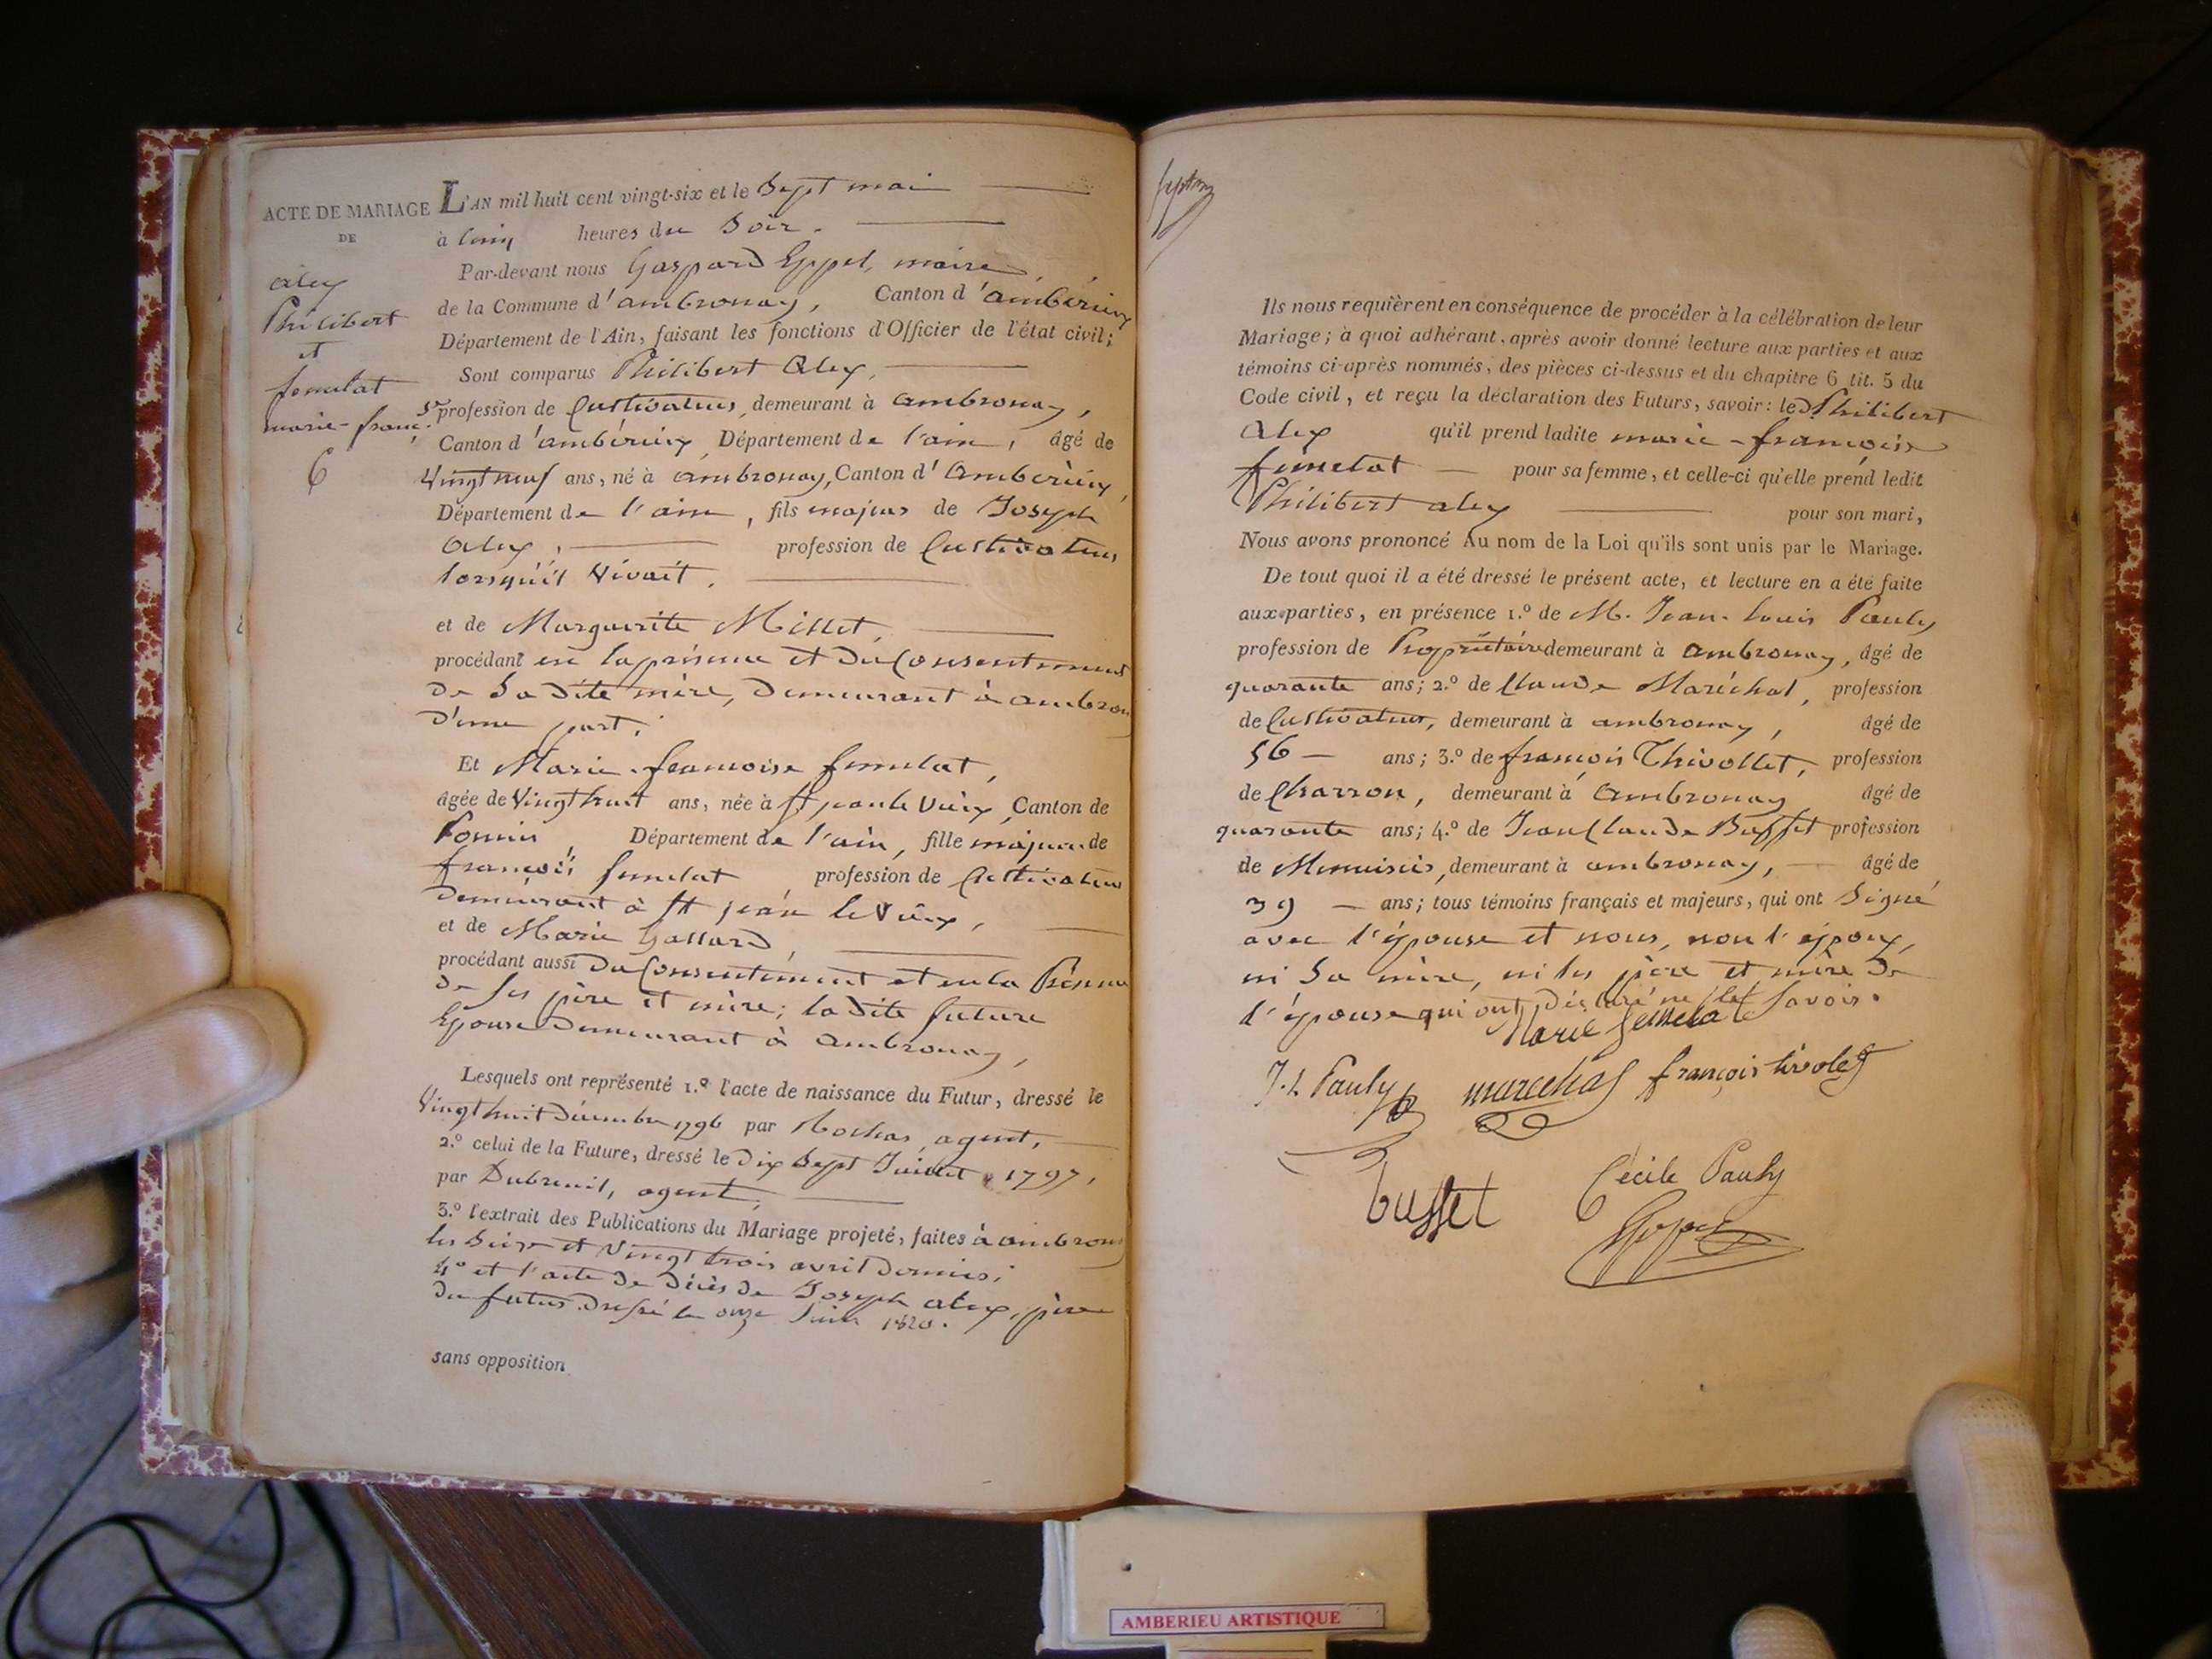 ACTE DE MARIAGE
DE
alex
Philibert
et
femelat
marie-franç.
6
L'AN mil huit cent vingt-six et le Sept mai
à Cinq heures du Soir.
Par-devant nous Gaspard Eppel, maire
de la Commune d'ambronay, Canton d'ambérieux
Département de l'Ain, faisant les fonctions d'Officier de l'état civil;
Sont comparus Philibert Alex,
profession de Cultivateur, demeurant à ambronay,
Canton d'ambérieux Département de l'ain, âgé de
Vingt neuf ans, né à ambronay, Canton d'Ambérieux,
Département de l'ain, fils majeur de Joseph
Alex, profession de Cultivateur
lorsqu'il Vivait,
et de Marguerite Millet,
procédant en la présence et Du Consentement
de Sa dite mère, Demeurant à ambron
D'une part;
Et Marie-francoise femelat,
âgée de Vingt huit ans, née à St jean le Vieux, Canton de
Poncin, Département de l'ain, fille majeure de
françois femelat profession de Cultivateur
Demeurant à St jean le Vieux,
et de Marie Gallard,
procédant aussi Du Consentement et en la Présence
de Ses père et mère; la dite future
Epouse Demeurant à Ambronay,
Lesquels ont représenté 1.º l'acte de naissance du Futur, dressé le
Vingt huit Décembre 1796 par Rochas, agent,
2.º celui de la Future, dressé le Dix Sept Juillet 1797,
par Dubreuil, agent,
3.º l'extrait des Publications du Mariage projeté, faites à ambrony
les Seize et Vingt trois avril Dernier;
4º et l'acte de Décès de Joseph alex, père
du futur Dressé le onze Juin 1820.
sans opposition
Ils nous requièrent en conséquence de procéder à la célébration de leur
Mariage; à quoi adhérant, après avoir donné lecture aux parties et aux
témoins ci-après nommés, des pièces ci-dessus et du chapitre 6 tit. 5 du
Code civil, et reçu la déclaration des Futurs, savoir: led. Philibert
Alex qu'il prend ladite marie-francoise
fémelat pour sa femme, et celle-ci qu'elle prend ledit
Philibert alex pour son mari,
Nous avons prononcé Au nom de la Loi qu'ils sont unis par le Mariage.
De tout quoi il a été dressé le présent acte, et lecture en a été faite
aux parties, en présence 1.º de M. Jean-Louis Pauly
profession de Propriétaire demeurant à Ambronay, âgé de
quarante ans; 2.º de Claude Maréchal, profession
de Cultivateur, demeurant à ambronay, âgé de
56 ans; 3.º de françois Thivollet, profession
de Charron, demeurant à Ambronay âgé de
quarante ans; 4.º de Jean Claude Buffet profession
de Menuisier, demeurant à ambronay, âgé de
39 ans; tous témoins français et majeurs, qui ont Signé
avec l'épouse et nous, non l'époux,
ni Sa mère, ni les père et mère de
l'épouse qui ont Déclaré ne le Savoir.
Marie femelat
J. L. Pauly marechal françois tivolet
buffet Cécile Pauly
Eppel
AMBERIEU ARTISTIQUE